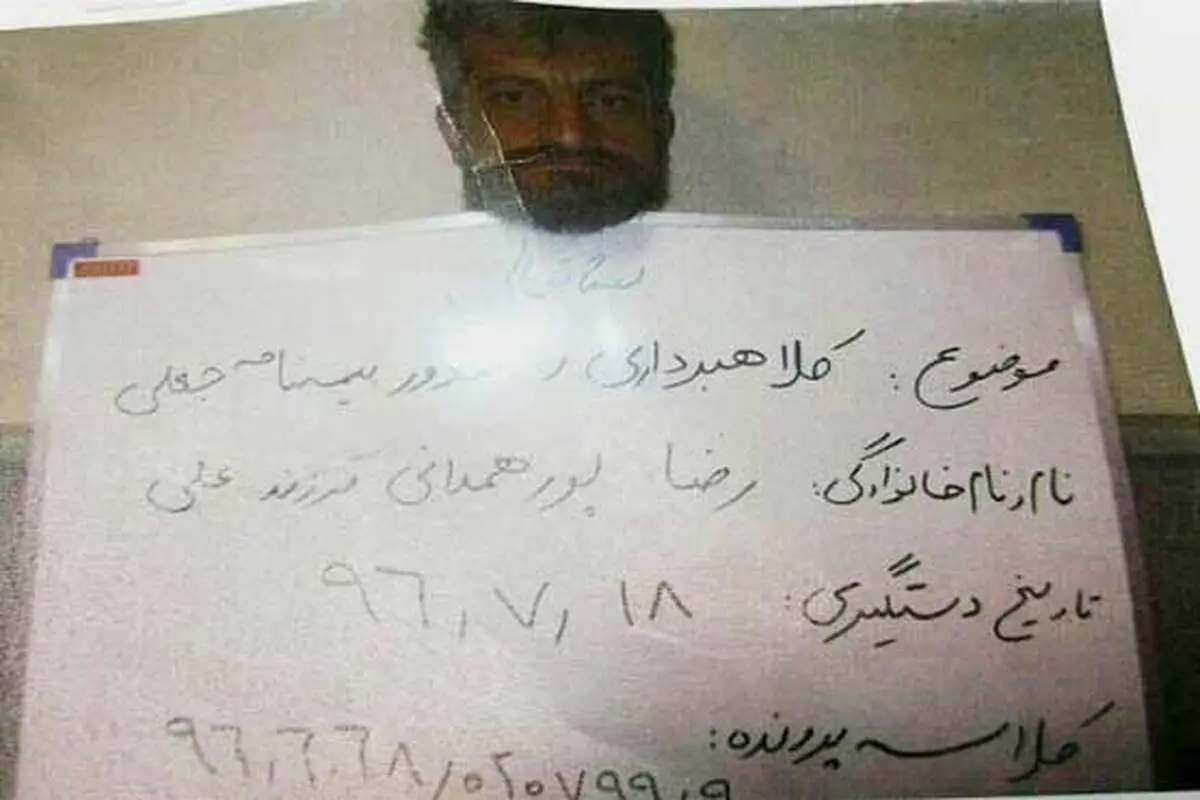 موضوع: کلاهبرداری و صدور بیمنامه جعلی
نام و نام خانوادگی: رضا پور همدانی فرزند علی
تاریخ دستگیری: ۹۶/۷/۱۸
کلاسه پرونده: